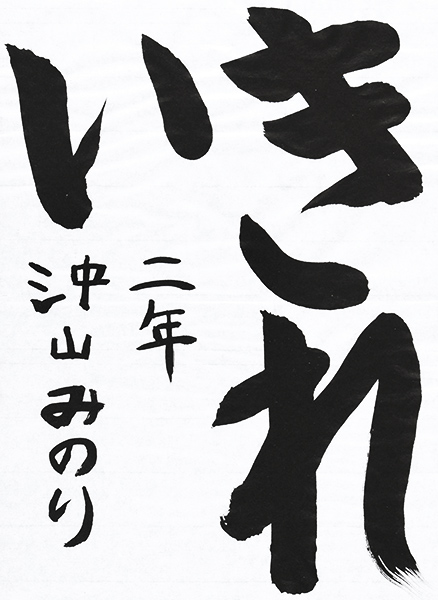 きれ
い
二年
沖山みのり